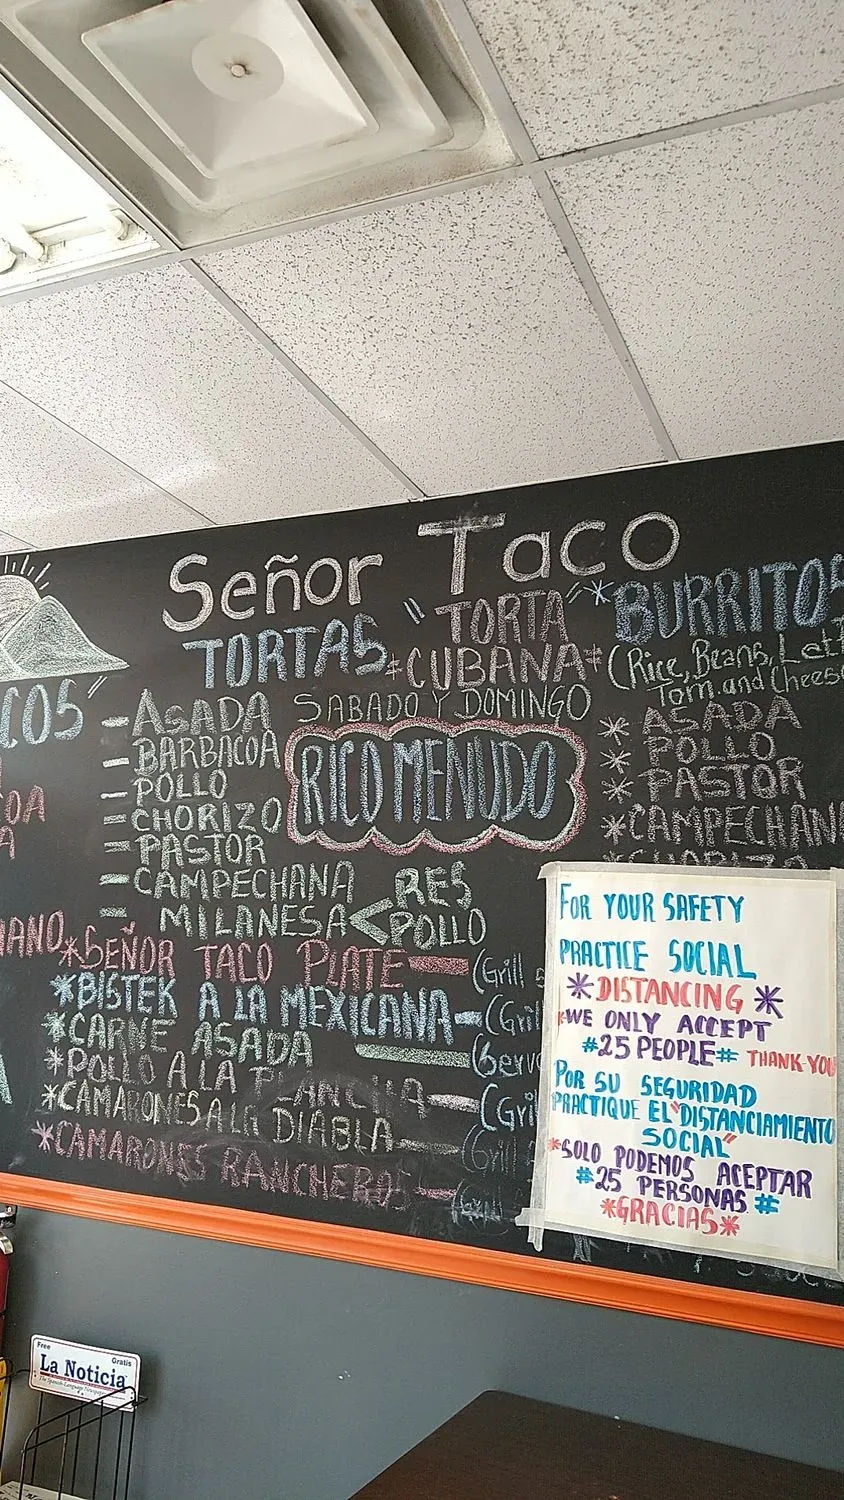 Señor Taco
TORTAS
"TORTA"
*CUBANA*
*BURRITOS
(Rice, Beans, Lett
Tom. and Cheese
COS"
- ASADA
- BARBACOA
- POLLO
- CHORIZO
- PASTOR
- CAMPECHANA
- MILANESA < RES
POLLO
SABADO Y DOMINGO
RICO MENUDO
* ASADA
* POLLO
* PASTOR
*CAMPECHAN
OA
A
ANO
*SEÑOR TACO PLATE - (Grill
*BISTEK A LA MEXICANA - (Gril
*CARNE ASADA - (Serv
*POLLO A LA PLANCHA - (Gril
*CAMARONES A LA DIABLA - (Grill
*CAMARONES RANCHEROS - (Grill
FOR YOUR SAFETY
PRACTICE SOCIAL
*DISTANCING*
*WE ONLY ACCEPT
#25 PEOPLE# THANK YOU
POR SU SEGURIDAD
PRACTIQUE EL "DISTANCIAMIENTO
SOCIAL"
*SOLO PODEMOS ACEPTAR
#25 PERSONAS #
*GRACIAS*
Free Gratis
La Noticia
The Spanish-Language Newspaper